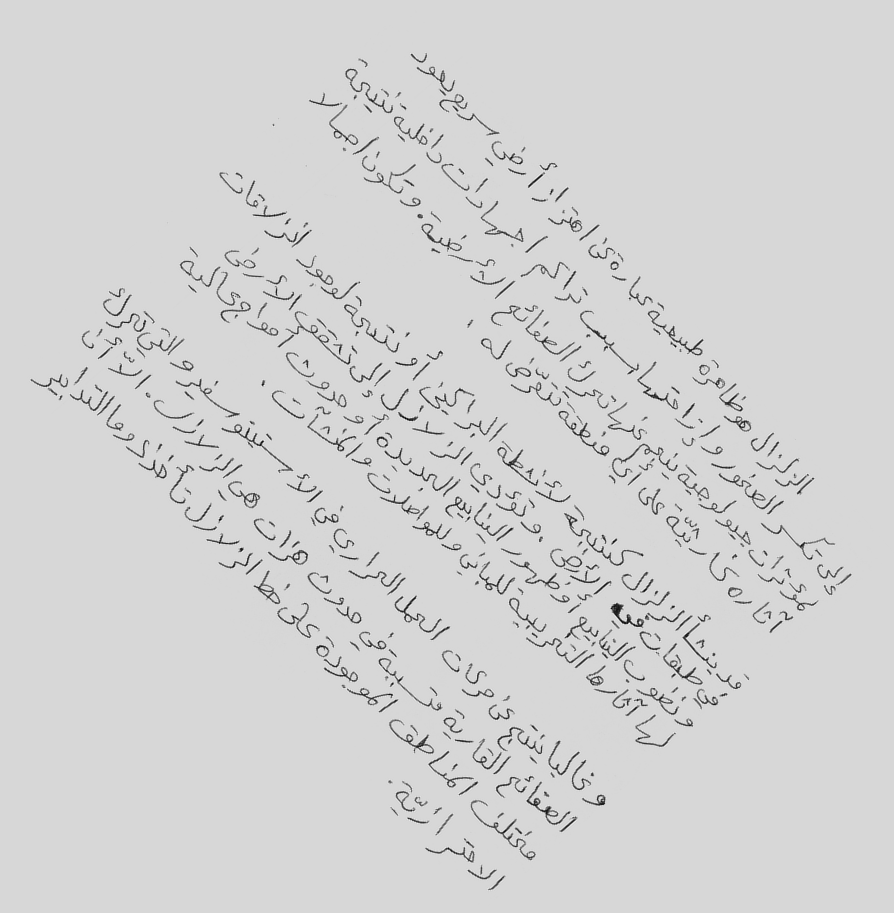 الزلزال هو ظاهرة طبيعية عبارة عن اهتزاز أرضي سريع يعود
إلى تكسر الصخور وإزاحتها بسبب تراكم اجهادات داخلية نتيجة
لمؤثرات جيولوجية ينجم عنها تحرك الصفائح الأرضية. وتكون اجمالا
آثاره كارثيّة على أي منطقة تتعرّض له.
قد ينشأ الزلزال كنتيجة لأنشطة البراكين أو نتيجة لوجود انزلاقات
في طبقات الأرض. وتؤدي الزلازل إلى تشقق الأرض
ونضوب الينابيع أو ظهور الينابيع الجديدة أو حدوث أمواج عالية
لها آثارها التخريبية للمباني وللمواصلات والمنشآت.
وغالبا ينتج عن حركات الحمل الحراري في الأستينوسفير والتي تحرك
الصفائح القارية متسببة في حدوث هزات هي الزلازل. الاّ أنّ
مختلف المناطق الموجودة على خط الزلازل تأخذ دوما التدابير
الاحترازيّة.